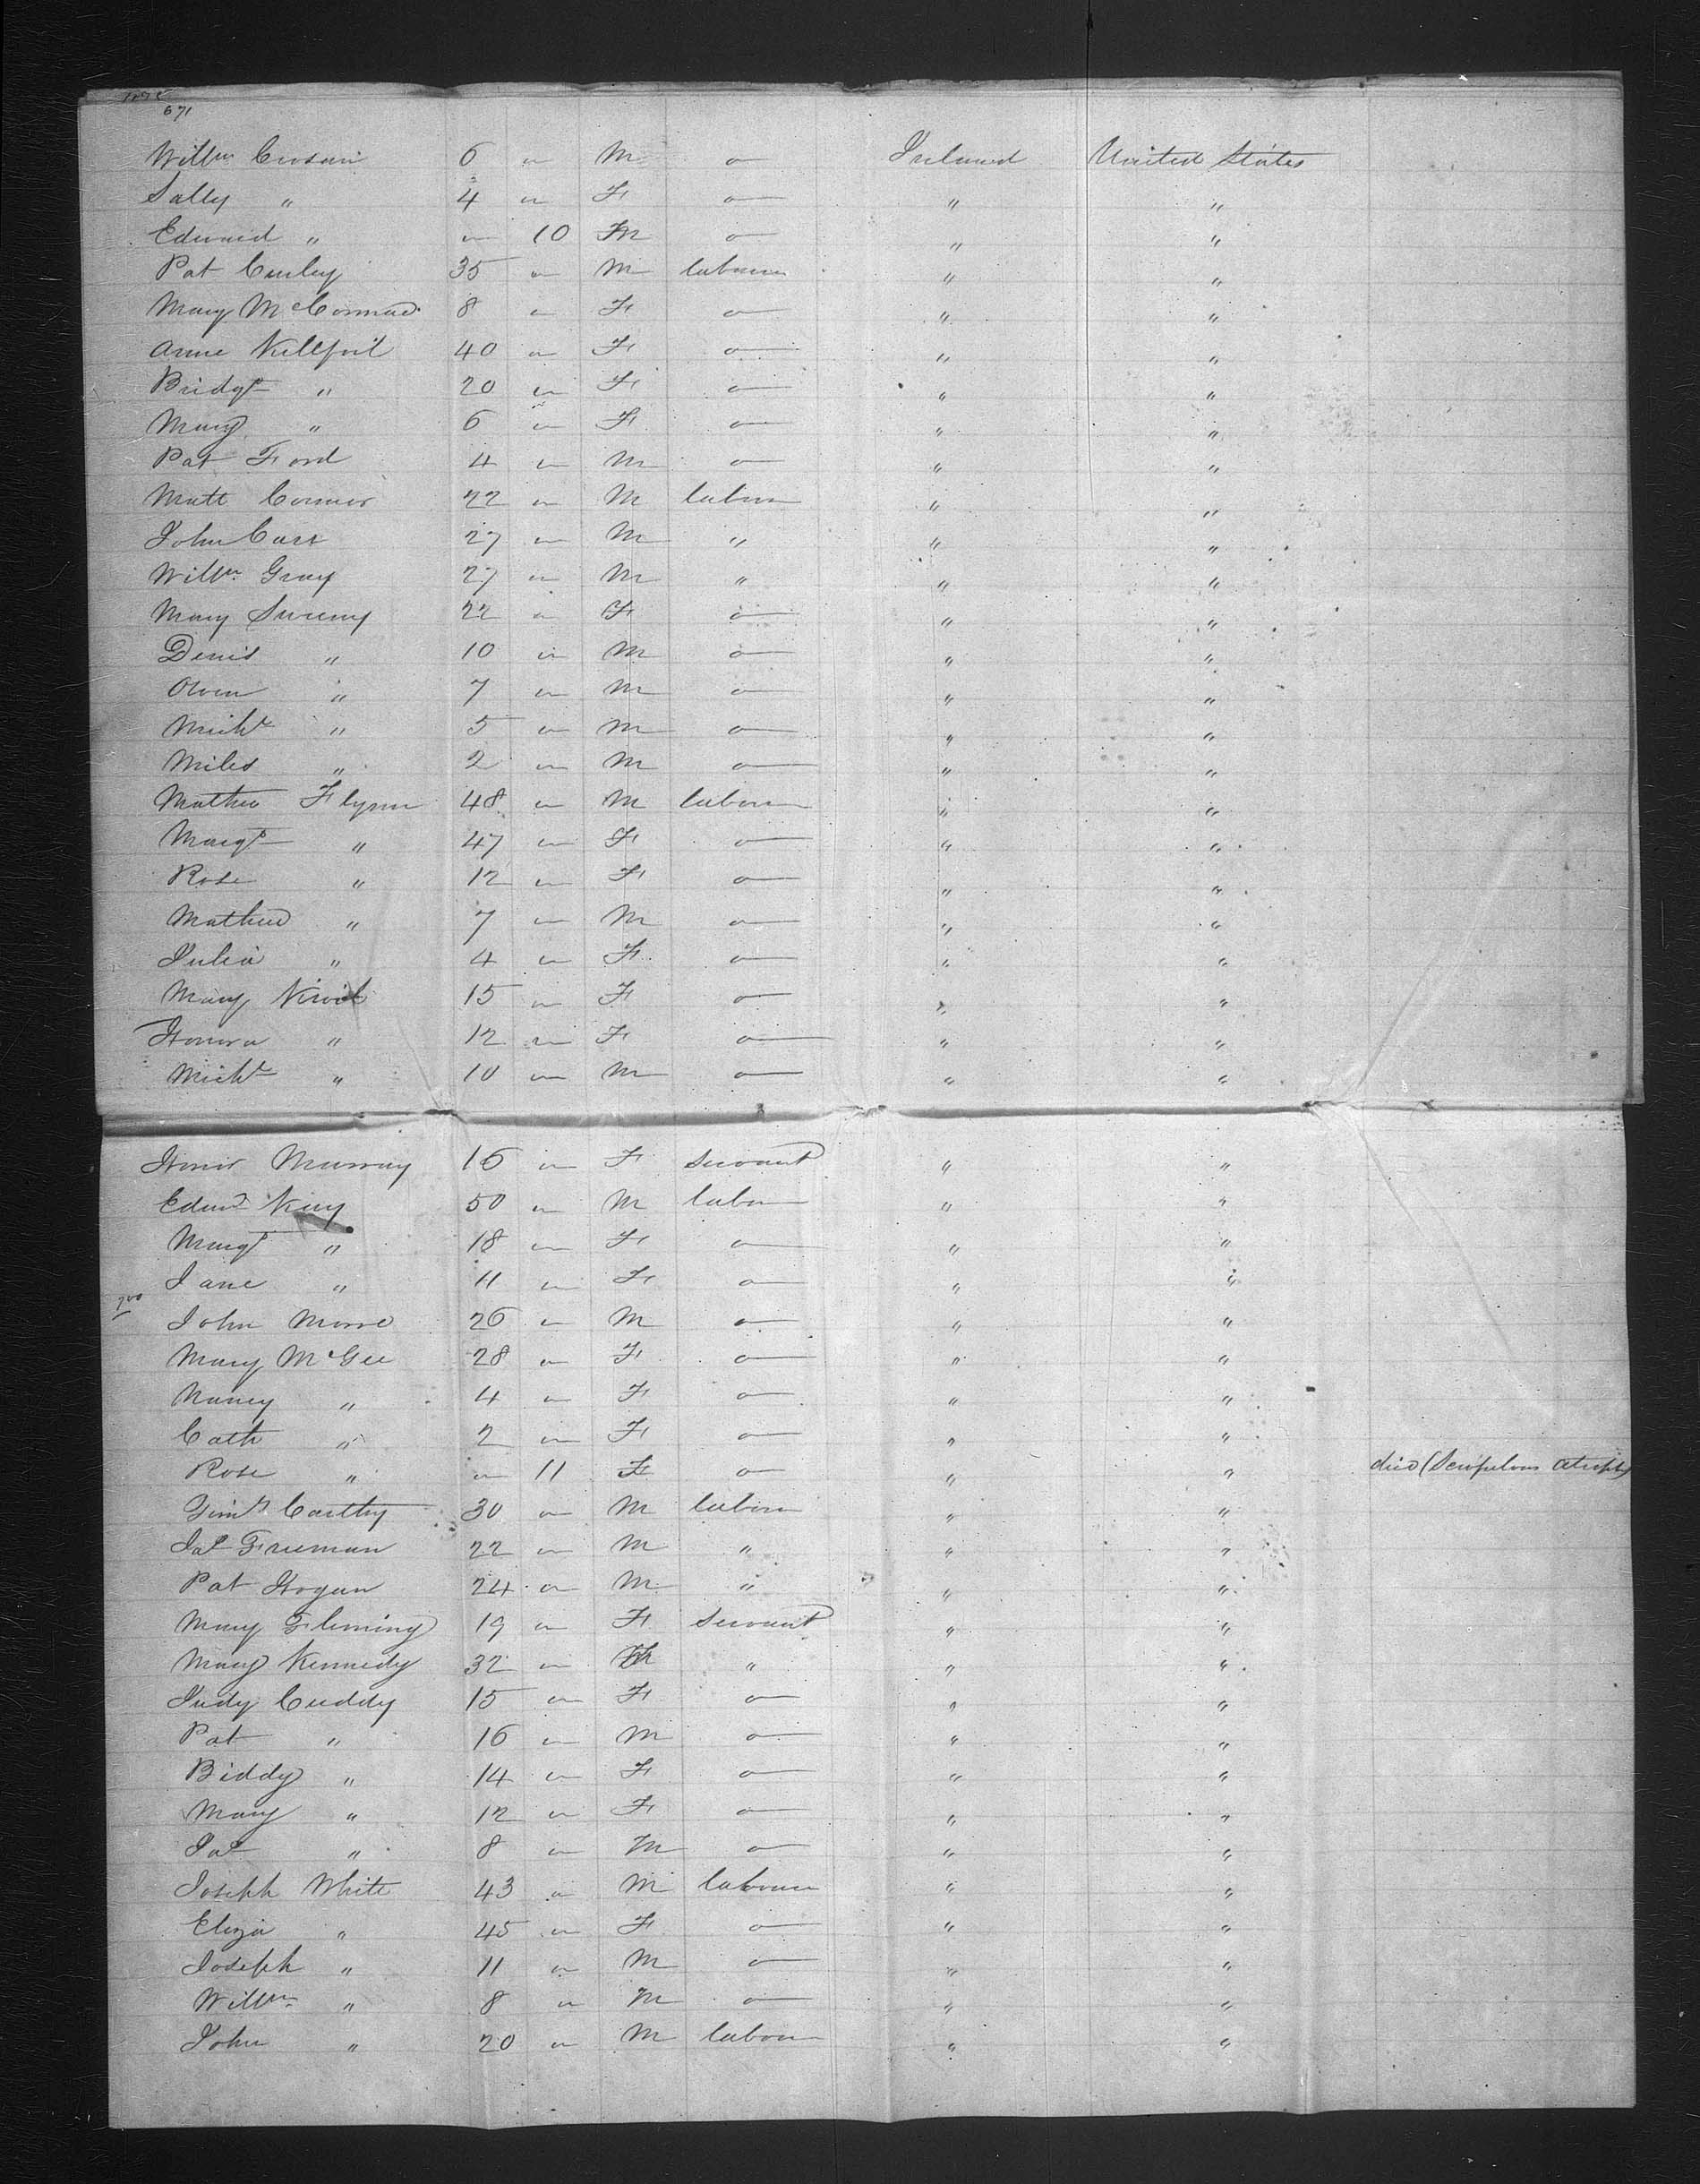 671
Willm 6 M Ireland United States
Sally " 4 F " "
Edward " 10 M " "
Pat Curley 35 M labourer " "
Mary McCormac 8 F " "
Anne Killfoil 40 F " "
Bridgt " 20 F " "
Mary " 6 F " "
Pat Ford 4 M " "
Matt Connor 22 M labour " "
John Carr 27 M " " "
Willm Gray 27 M " " "
Mary Sweeny 22 F " "
Denis " 10 M " "
Owen " 7 M " "
Michl " 5 M " "
Miles " 2 M " "
Mathew Flynn 48 M labour " "
Margt " 47 F " "
Rose " 12 F " "
Mathew " 7 M " "
Julia " 4 F " "
Mary 15 F " "
Honora " 12 F " "
Michl " 10 M " "
Honor Murray 16 F servant " "
Edwd 50 M labour " "
Margt " 18 F " "
Jane " 11 F " "
700 John 26 M " "
Mary McGee 28 F " "
Nancy " 4 F " "
Cath " 2 F " "
Rose " 11 F " " died (Scrofulous atrophy
Timy Carthy 30 M labour " "
Jas Freeman 22 M " " "
Pat Hogan 24 M " " "
Mary Fleming 19 F servant " "
Mary Kennedy 32 " " "
Judy Cuddy 15 F " "
Pat " 16 M " "
Biddy " 14 F " "
Mary " 12 F " "
Jas " 8 M " "
Joseph White 43 M labour " "
Eliza " 45 F " "
Joseph " 11 M " "
Willm " 8 M " "
John " 20 M labour " "